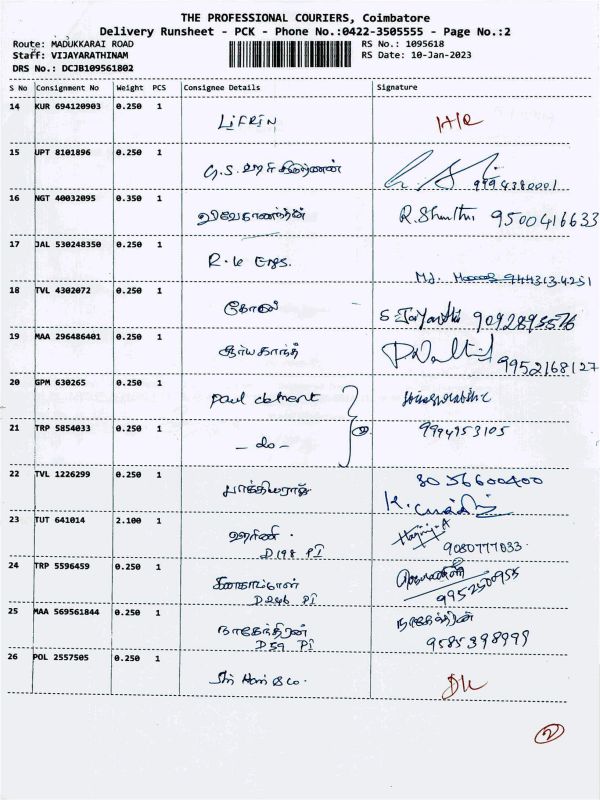 THE PROFESSIONAL COURIERS, Coimbatore
Delivery Runsheet - PCK - Phone No.:0422-3505555 - Page No.:2
Route: MADUKKARAI ROAD RS No.: 1095618
Staff: VIJAYARATHINAM RS Date: 10-Jan-2023
DRS No.: DCJB109561802
S No Consignment No Weight PCS Consignee Details Signature
14 KUR 694120903 0.250 1
LiFRiN
15 UPT 8101896 0.250 1
16 NGT 40032095 0.350 1
விவேகானந்தன் R. Shanthi 9500416633
17 JAL 530248350 0.250 1
R.K Engs.
9443134251
18 TVL 4302072 0.250 1
கோமதி S Jayanthi 9092895576
19 MAA 296486401 0.250 1
சூர்யகாந்த் 9952168127
20 GPM 630265 0.250 1
Paul
21 TRP 5854033 0.250 1 9994953105
- do -
22 TVL 1226299 0.250 1 8056600400
பாக்கியராஜ்
23 TUT 641014 2.100 1
ஹரிணி. Harini.A
D198 PI 9080777033
24 TRP 5596459 0.250 1
D246 PI 9952500955
25 MAA 569561844 0.250 1
நாகேந்திரன்
D59 PI 9585398999
26 POL 2557505 0.250 1
Sri Hari & Co.
2